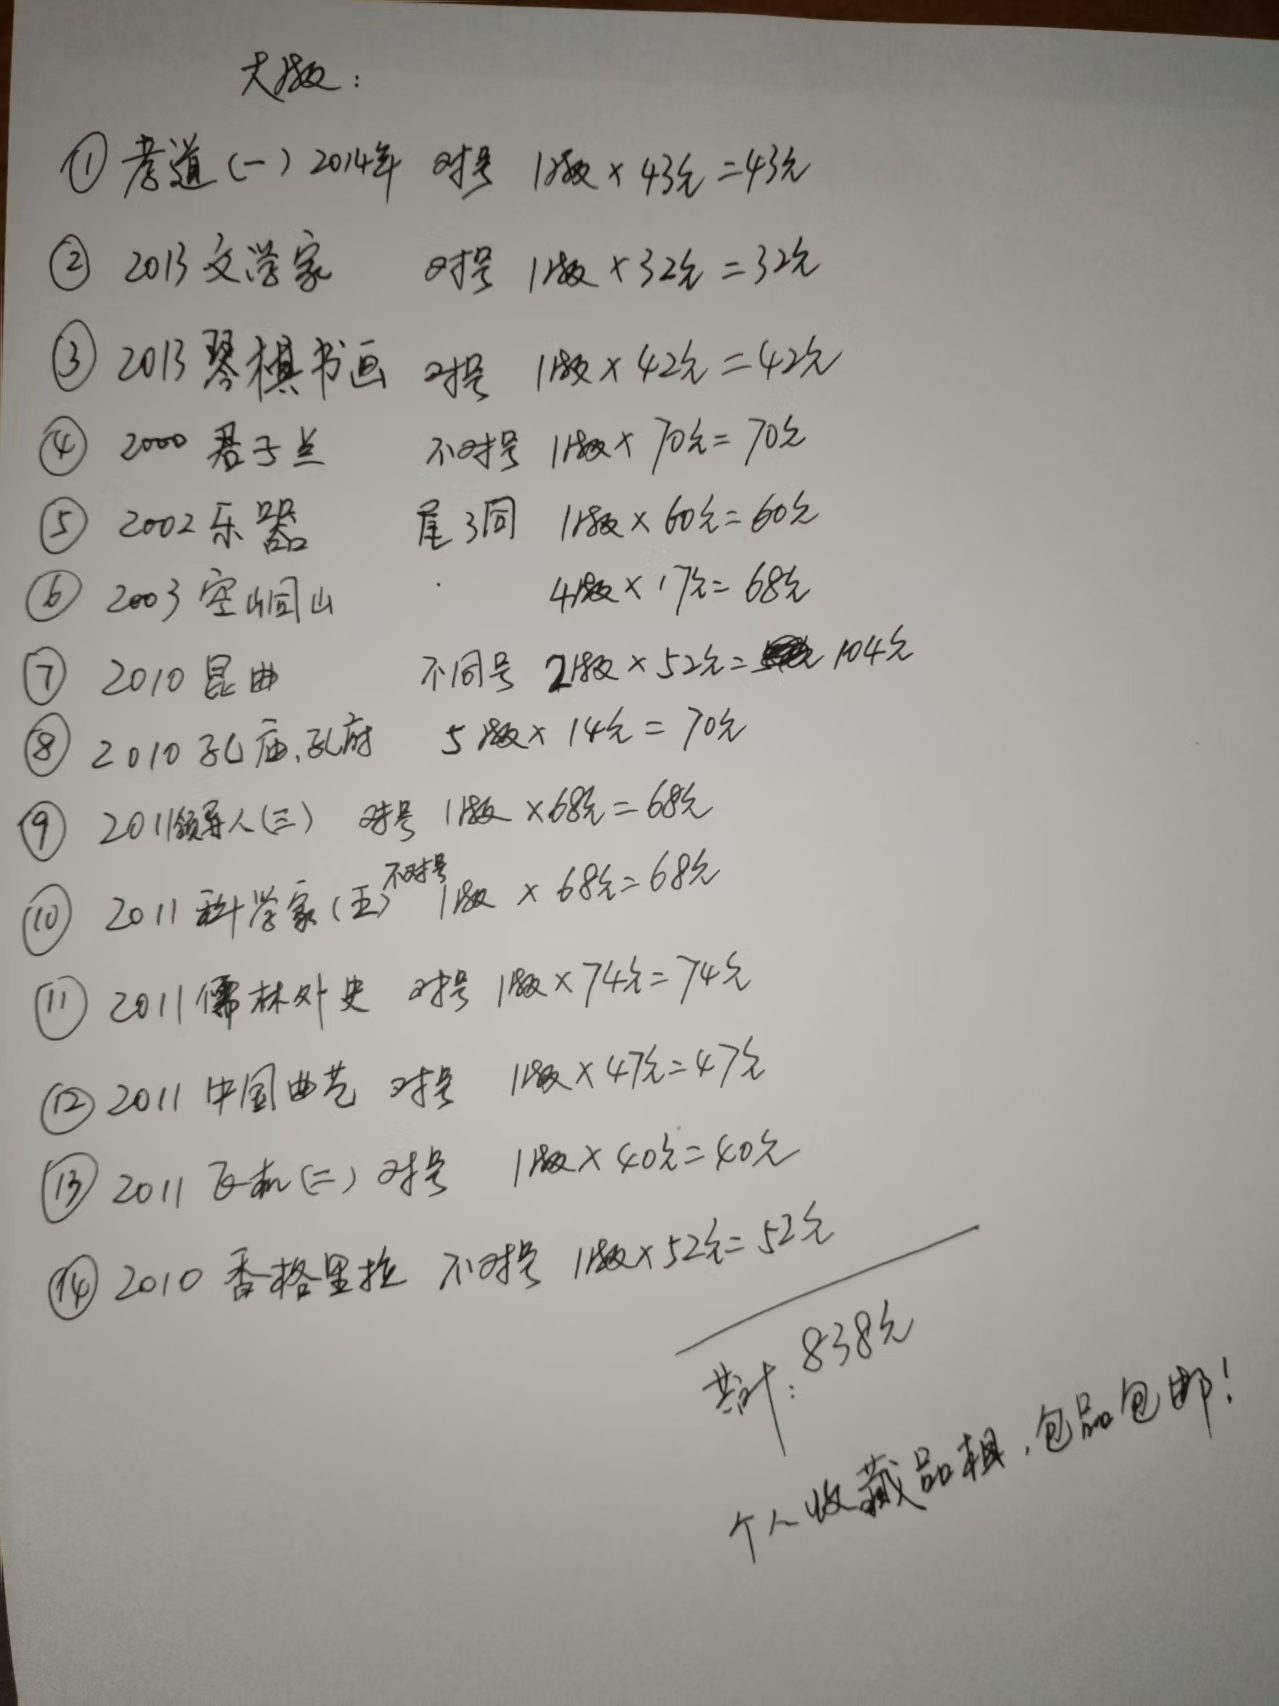 大版：
① 孝道（一）2014年 对号 1版×43元=43元
② 2013文学家 对号 1版×32元=32元
③ 2013琴棋书画 对号 1版×42元=42元
④ 2000君子兰 不对号 1版×70元=70元
⑤ 2002乐器 尾3同 1版×60元=60元
⑥ 2003空峒山 4版×17元=68元
⑦ 2010昆曲 不同号 2版×52元= 104元
⑧ 2010孔庙、孔府 5版×14元=70元
⑨ 2011领导人（三） 对号 1版×68元=68元
⑩ 2011科学家（五）不对号 1版×68元=68元
⑪ 2011儒林外史 对号 1版×74元=74元
⑫ 2011中国曲艺 对号 1版×47元=47元
⑬ 2011飞机（二） 对号 1版×40元=40元
⑭ 2010香格里拉 不对号 1版×52元=52元
共计：838元
个人收藏品相，包品包邮！